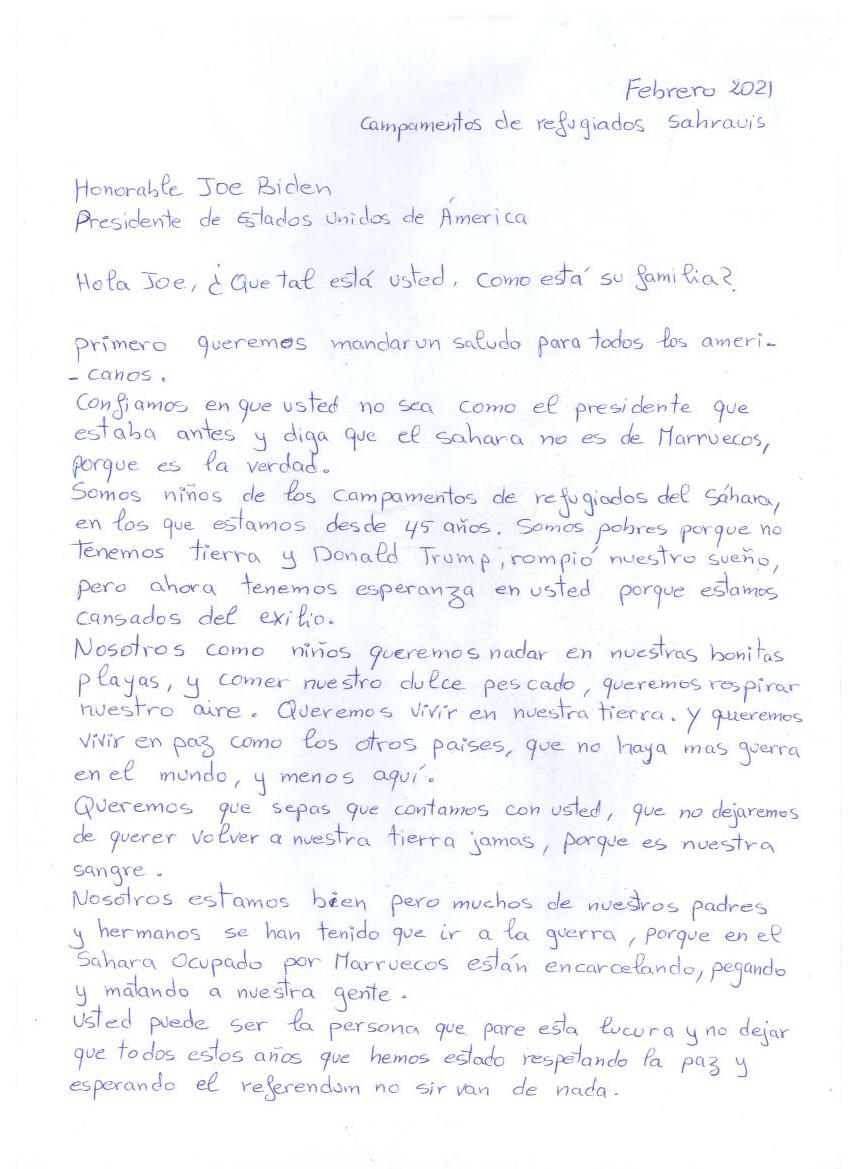 Febrero 2021
Campamentos de refugiados Sahrauis
Honorable Joe Biden
Presidente de Estados Unidos de América
Hola Joe, ¿Que tal está usted, como está su familia?
primero queremos mandar un saludo para todos los ameri-
- canos.
Confiamos en que usted no sea como el presidente que
estaba antes y diga que el sahara no es de Marruecos,
porque es la verdad.
Somos niños de los campamentos de refugiados del Sáhara,
en los que estamos desde 45 años. Somos pobres porque no
Tenemos tierra y Donald Trump, rompió nuestro sueño,
pero ahora tenemos esperanza en usted porque estamos
cansados del exilio.
Nosotros como niños queremos nadar en nuestras bonitas
playas, y comer nuestro dulce pescado, queremos respirar
nuestro aire. Queremos vivir en nuestra tierra. y queremos
vivir en paz como los otros paises, que no haya mas guerra
en el mundo, y menos aquí.
Queremos que sepas que contamos con usted, que no dejaremos
de querer volver a nuestra tierra jamas, porque es nuestra
sangre.
Nosotros estamos bien pero muchos de nuestros padres
y hermanos se han tenido que ir a la guerra, porque en el
Sahara Ocupado por Marruecos están encarcelando, pegando
y matando a nuestra gente.
Usted puede ser la persona que pare esta lucura y no dejar
que todos estos años que hemos estado respetando la paz y
esperando el referendum no sirvan de nada.